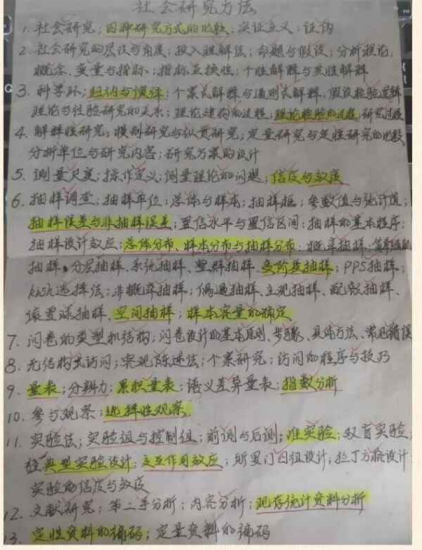 社会研究方法
1. 社会研究;四种研究方式的比较;实证主义;证伪
2. 社会研究的层次与角度;投入理解法;命题与假设;分析理论,
概念、变量与指标;指标互换性;个性解释与共性解释
3. 科学环;归纳与演绎;个案式解释与通则式解释,假设检验逻辑
理论与经验研究的关系;理论建构的过程;理论检验的过程;研究过程
4. 解释性研究;横剖研究与纵贯研究;定量研究与定性研究的比较
分析单位与研究内容;研究方案的设计
5. 测量尺度;操作定义;测量理论的问题;信度与效度
6. 抽样调查;抽样单位;总体与样本;抽样框;参数值与统计值;
抽样误差与非抽样误差;置信水平与置信区间;抽样的基本程序;
抽样设计效应;总体分布、样本分布与抽样分布;概率抽样、简单随机
抽样、分层抽样、系统抽样、整群抽样、多阶段抽样;PPS抽样;
户内选择法;非概率抽样;偶遇抽样、主观抽样、配额抽样、
滚雪球抽样、空间抽样;样本容量的确定
7. 问卷的类型和结构;问卷设计的基本原则、步骤、具体方法、常见错误
8. 无结构式访问;客观陈述法;个案研究;访问的程序与技巧
9. 量表;分辨力;累积量表;语义差异量表;指数分析
10. 参与观察;选择性观察
11. 实验法;实验组与控制组;前测与后测;准实验;双盲实验
典型实验设计;交互作用效应;所罗门四组设计;拉丁方格设计;
实验的信度与效度
12. 文献研究;第二手分析;内容分析;现存统计资料分析
13. 定性资料的编码;定量资料的编码